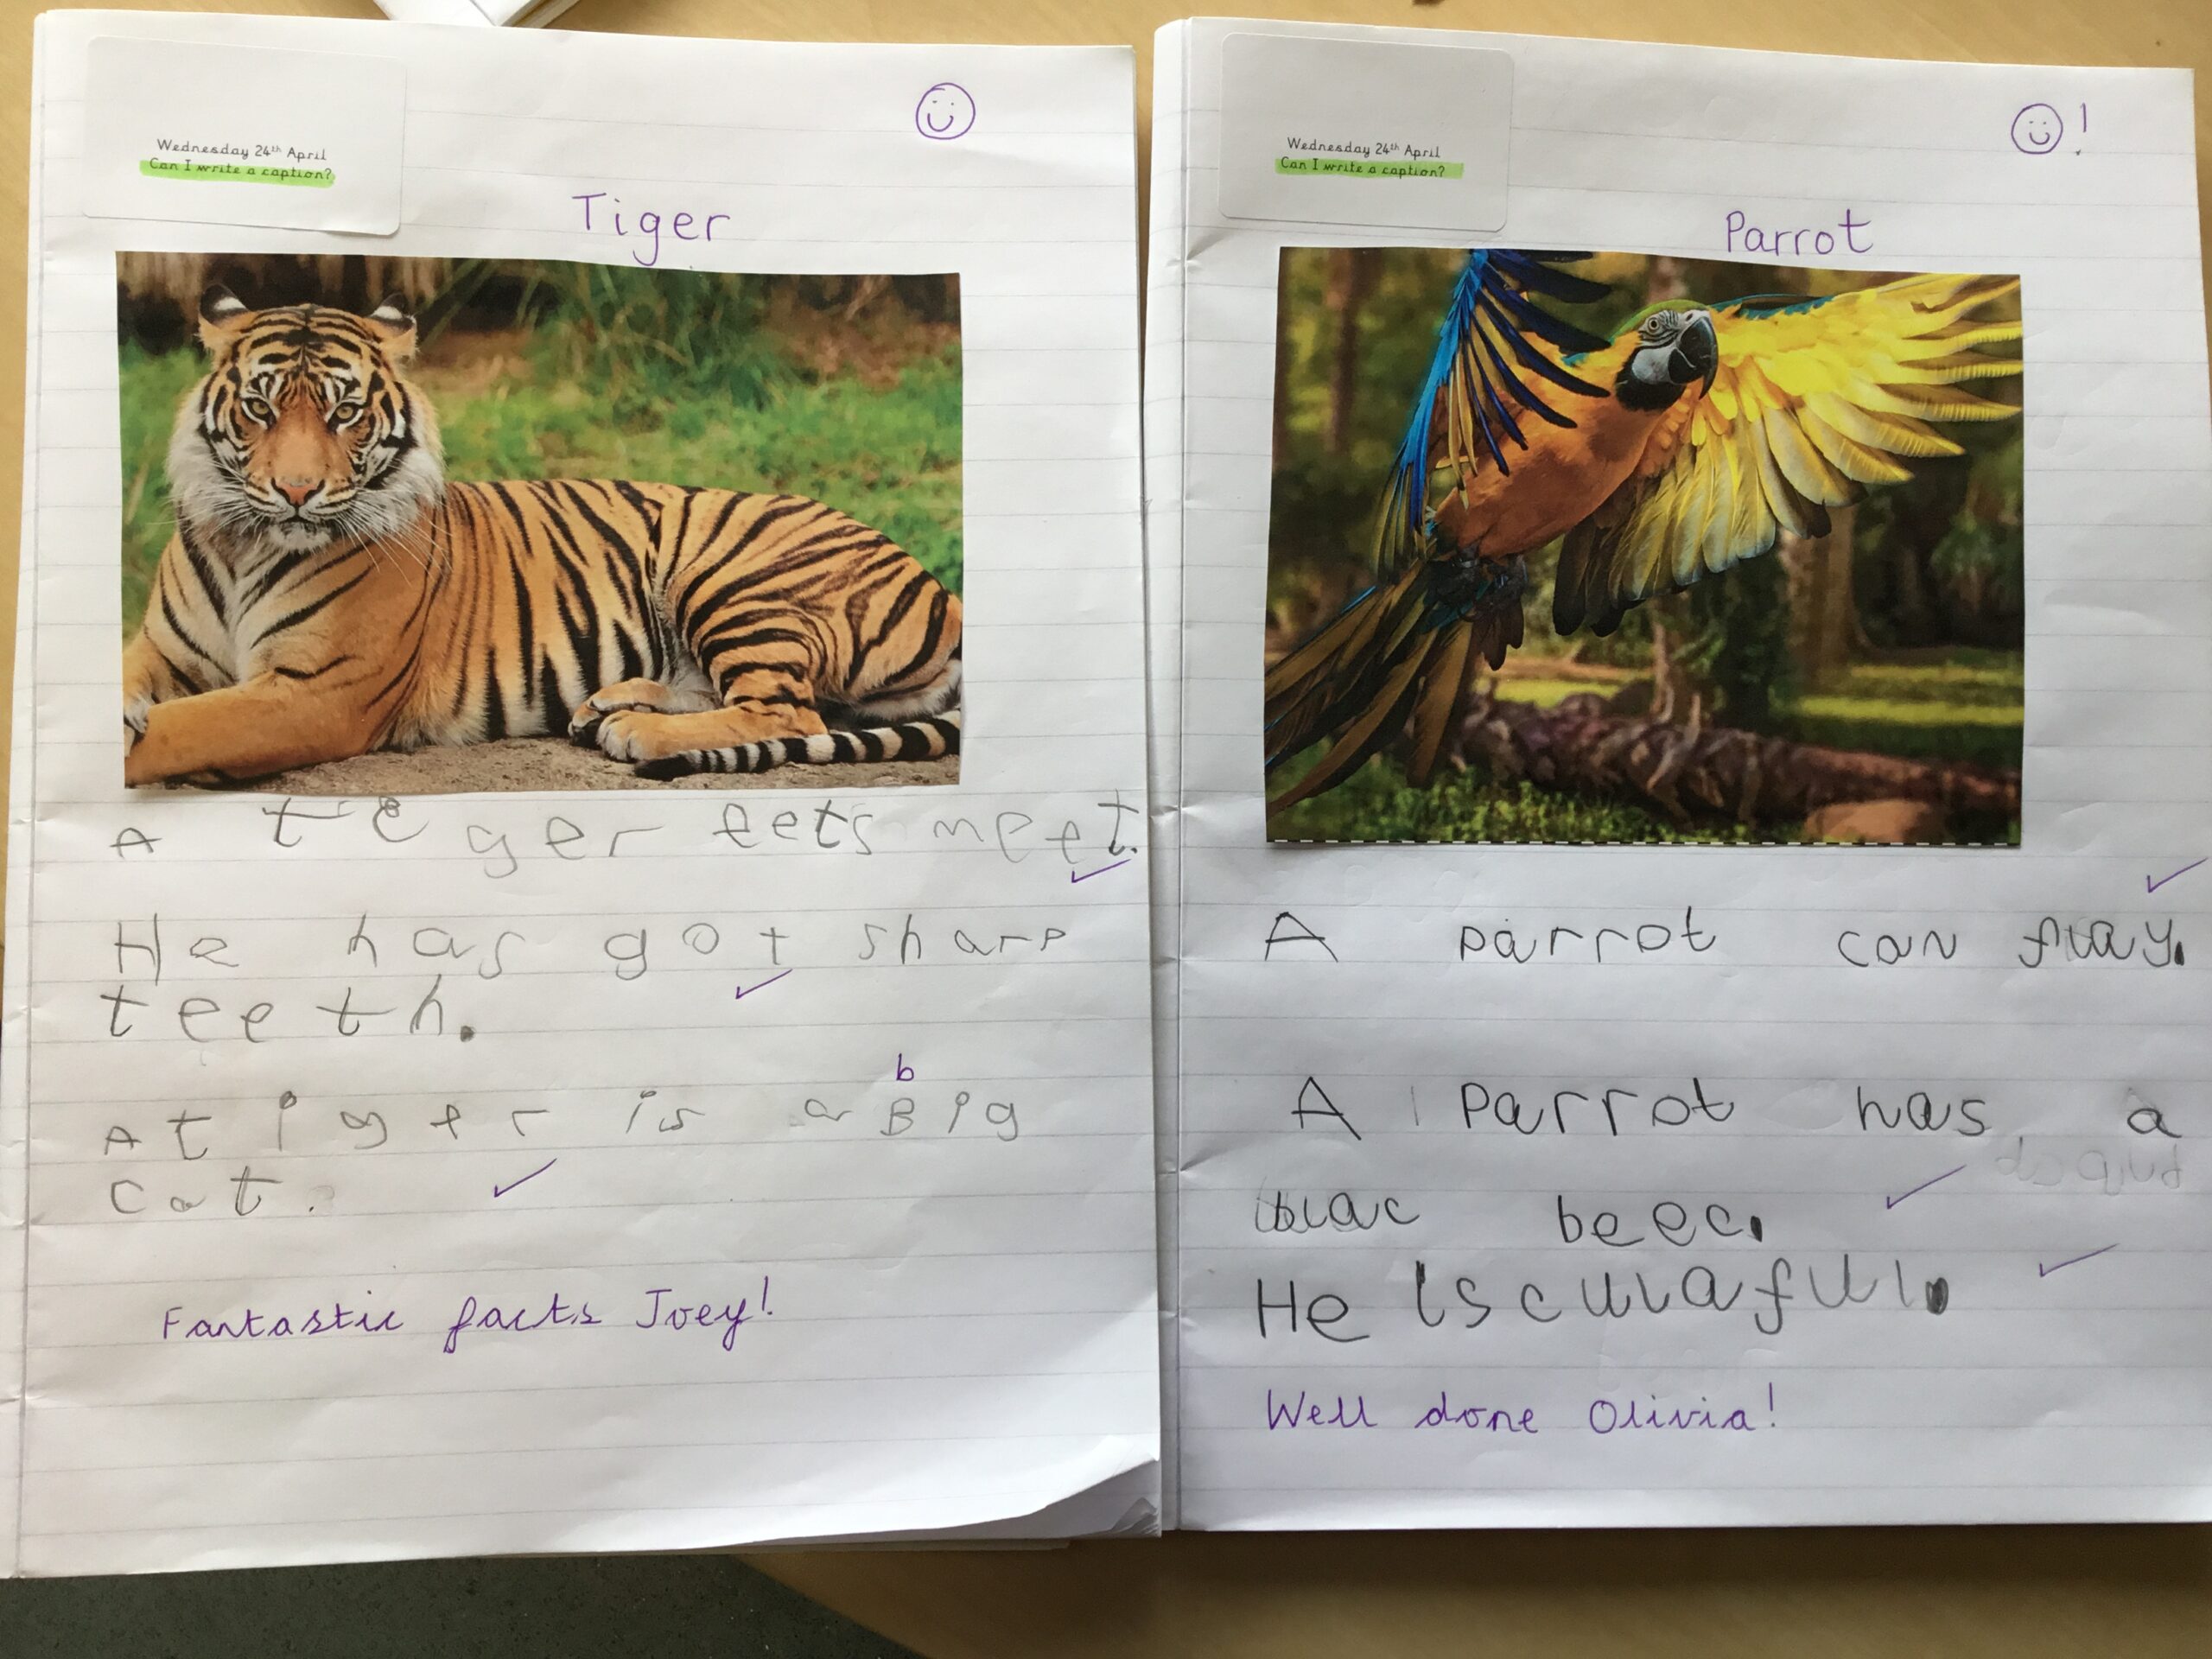 Wednesday 24th April
Can I write a caption?
Tiger
A teger eets meet.
He has got sharp
teeth.
b
A tiger is a Big
cat.
Fantastic facts Joey!
Wednesday 24th April
Can I write a caption?
!
Parrot
A parrot can flay.
A parrot has a
blac beec.
He is culaful.
Well done Olivia!